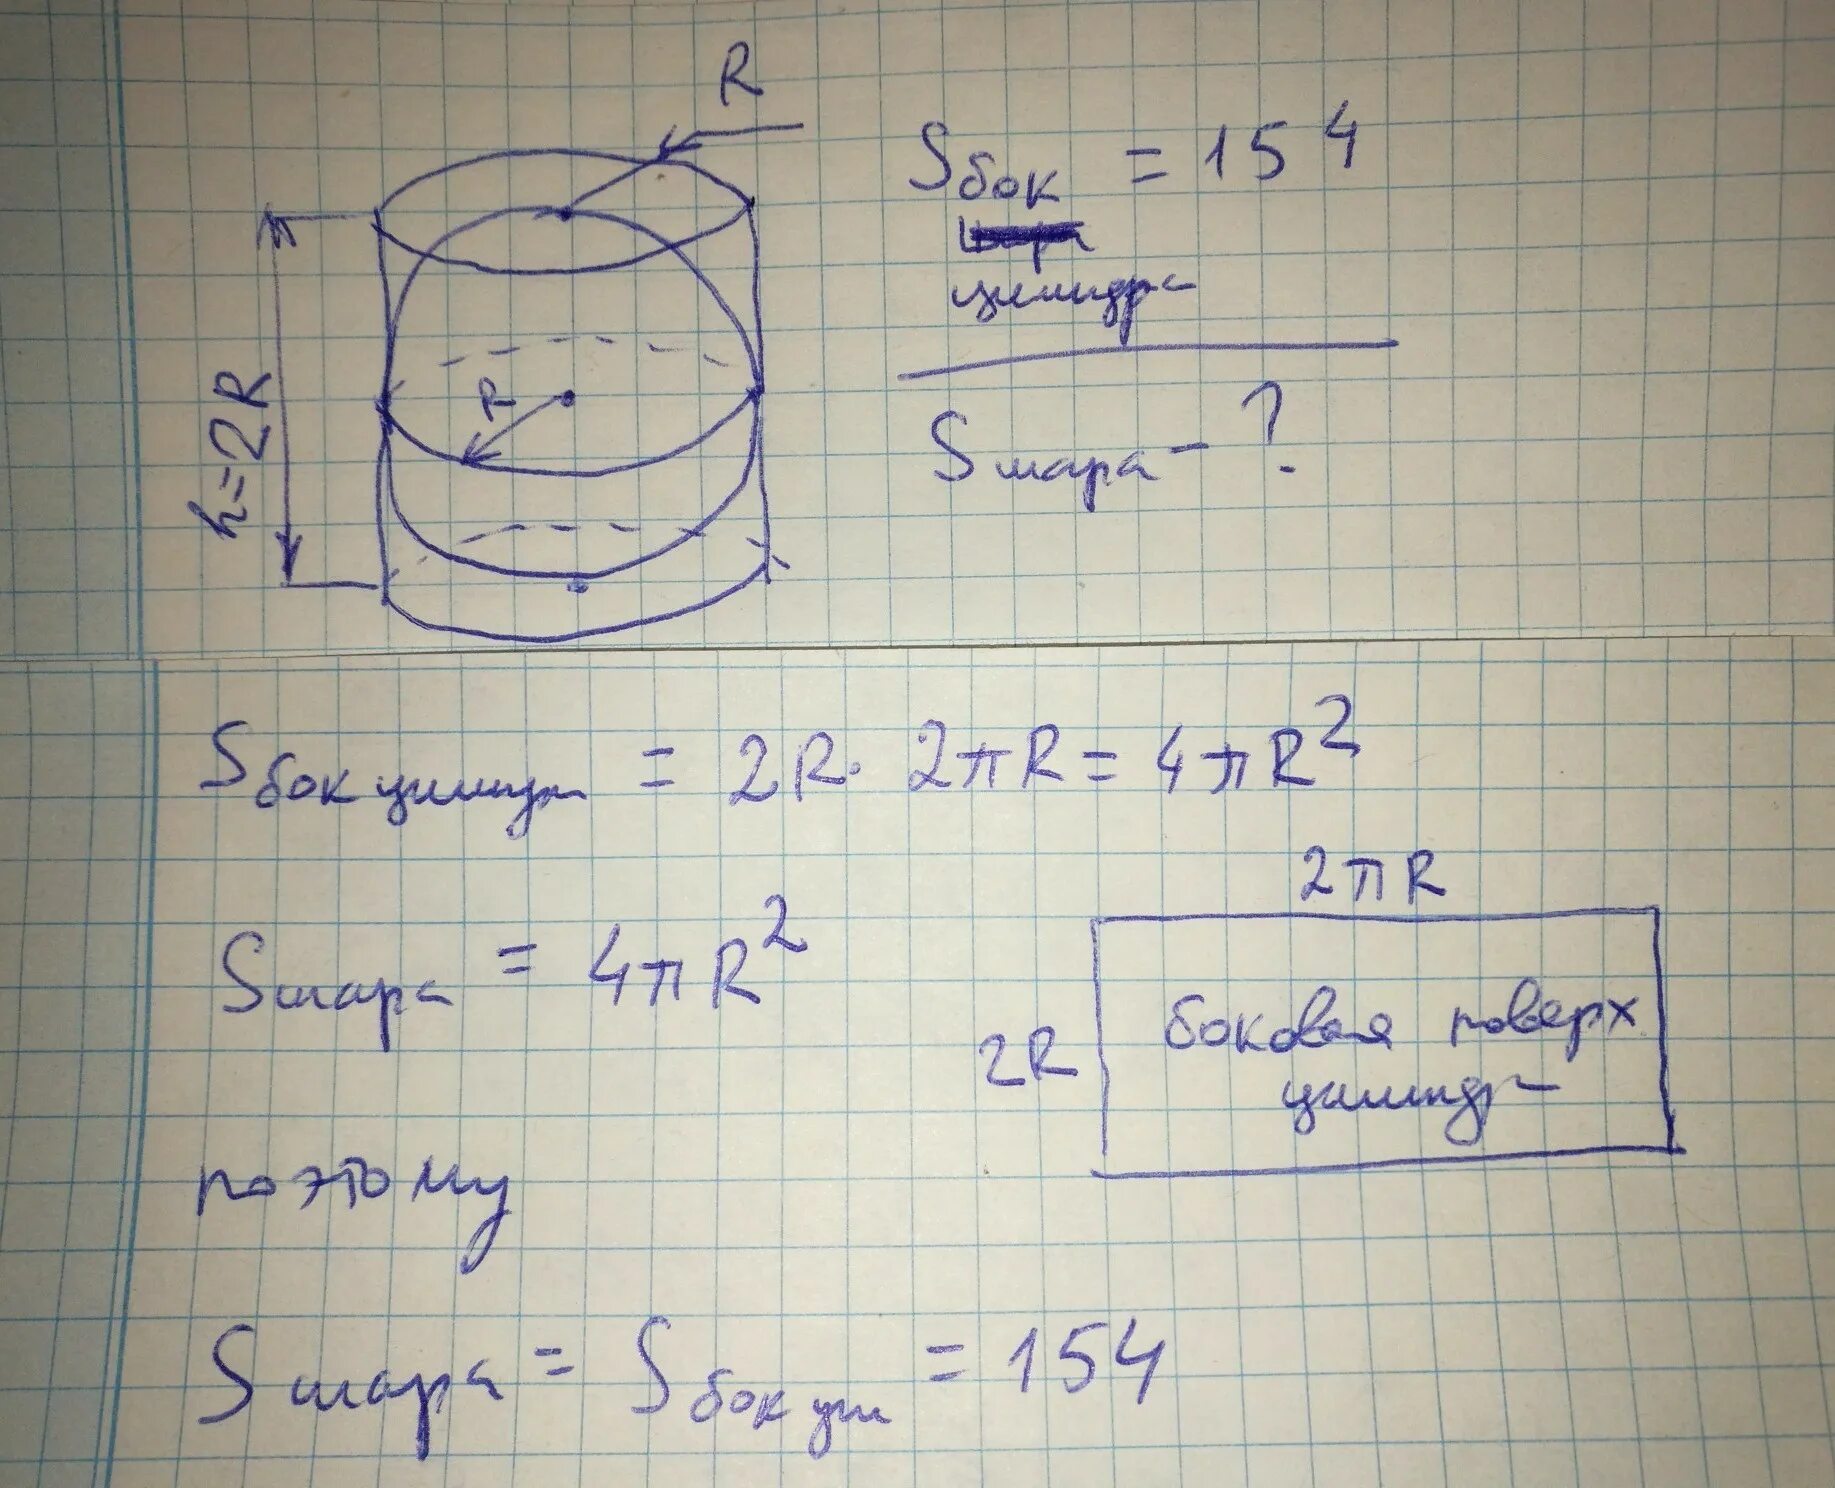 R
Sбок = 154
цилиндра
h=2R
R
Sшара - ?
Sбок цилиндра = 2R · 2πR = 4πR²
Sшара = 4πR²
2πR
2R
боковая поверх
цилиндр
поэтому
Sшара = Sбок цил = 154